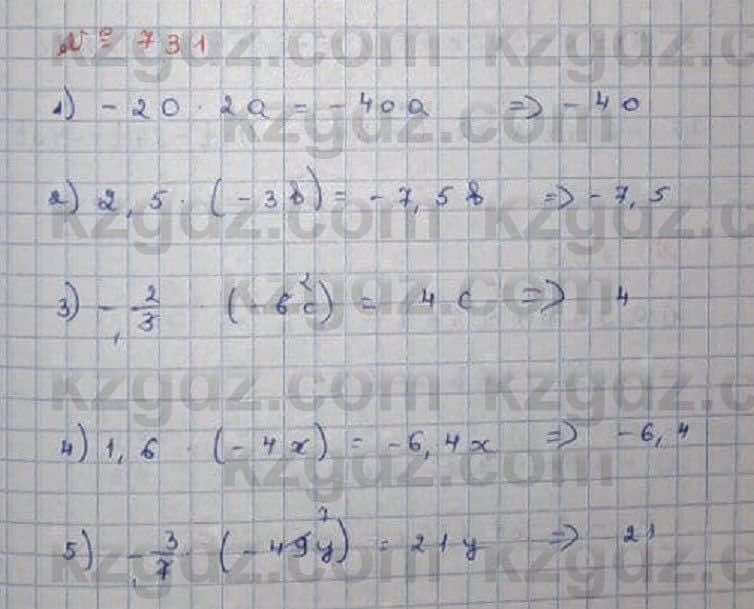 № 731
1) - 20 · 2a = - 40a => - 40
2) 2,5 · (- 3b) = - 7,5b => - 7,5
3) - 2/3 · (- 6 2 c) = 4c => 4
4) 1,6 · (- 4x) = - 6,4x => - 6,4
5) - 3/7 · (- 49 7 y) = 21y => 21
kzgdz.com kzgdz.com
kzgdz.com
kzgdz.com kzgdz.com
kzgdz.com
kzgdz.com kzgdz.com
kzgdz.com
kzgdz.com kzgdz.com